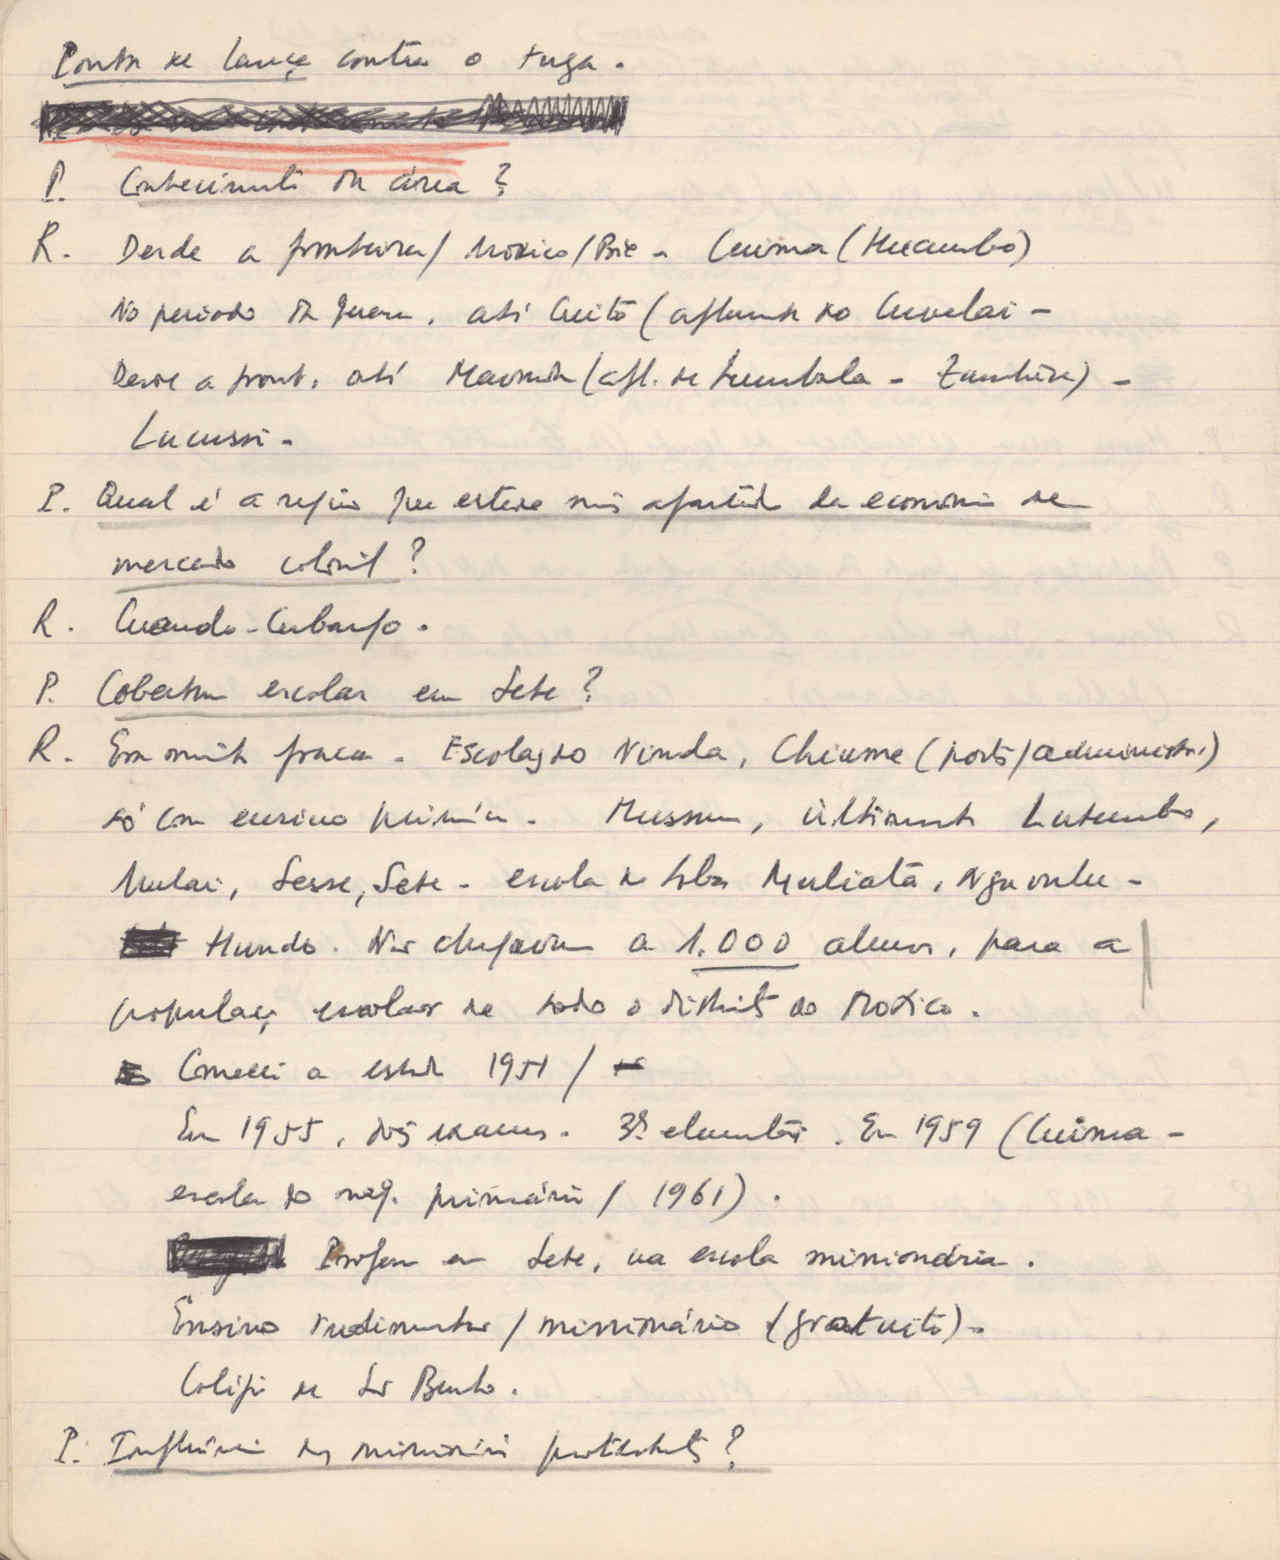 Ponta de lança contra o tuga.
P. Conhecimento da área?
R. Desde a fronteira/Moxico/Bié - Cuima (Huambo)
No período da guerra, até Cuito (afluente do Cuvelai -
Desde a front. até (afl. de Lumbala - Zambeze) -
Lucussi -
P. Qual é a região que esteve mais afastada da economia de
mercado colonial?
R. Cuando-Cubango.
P. Cobertura escolar em Sete?
R. Era muito fraca. Escolas do Ninda, Chiume (posto/administr.)
só com ensino primário. Mussuma, ultimamente Lutembo,
Muié, Sesse, Sete - escola do Soba Muliata,
Mundo. Não chegavam a 1.000 alunos, para a
populaç escolar de todo o distrito do Moxico.
Comecei a estudar 1951 /
Em 1955, dois exames. 3ª elementar. Em 1959 (Cuima -
escola do mag. primário / 1961).
Professor em Sete, na escola missionária.
Ensino rudimentar / missionário (gratuito) -
Colégio de São Bento.
P. Influência das missões protestantes?